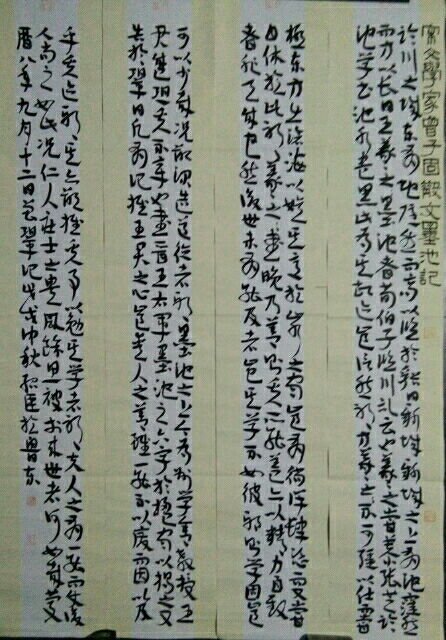 宋文學家曾子固散文墨池記
臨川之城東有地隱然而高以臨於谿曰新城新城之上有池窪然
而方以長曰王羲之之墨池者荀伯子臨川記云也羲之嘗慕張芝臨
池學書池水盡黑此為其故迹豈信然邪方羲之之不可強以仕而嘗
極東方出滄海以娛其意於山水之間豈有徜徉肆恣而又嘗
自休於此邪羲之之書晚乃善則其所能蓋亦以精力自致
者非天成也然後世未有能及者豈其學不如彼邪則學固豈
可以少哉況欲深造道德者邪墨池之上今為州學舍教授王
君盛恐其不章也書晉王右軍墨池之六字於楹間以揭之又
告於鞏曰願有記推王君之心豈愛人之善雖一能不以廢而因以及
乎其迹邪其亦欲推其事以勉其學者邪夫人之有一能而使後
人尚之如此況仁人莊士之遺風餘思被於來世者何如哉慶
曆八年九月十二日曾鞏記戊戌中秋於魯東